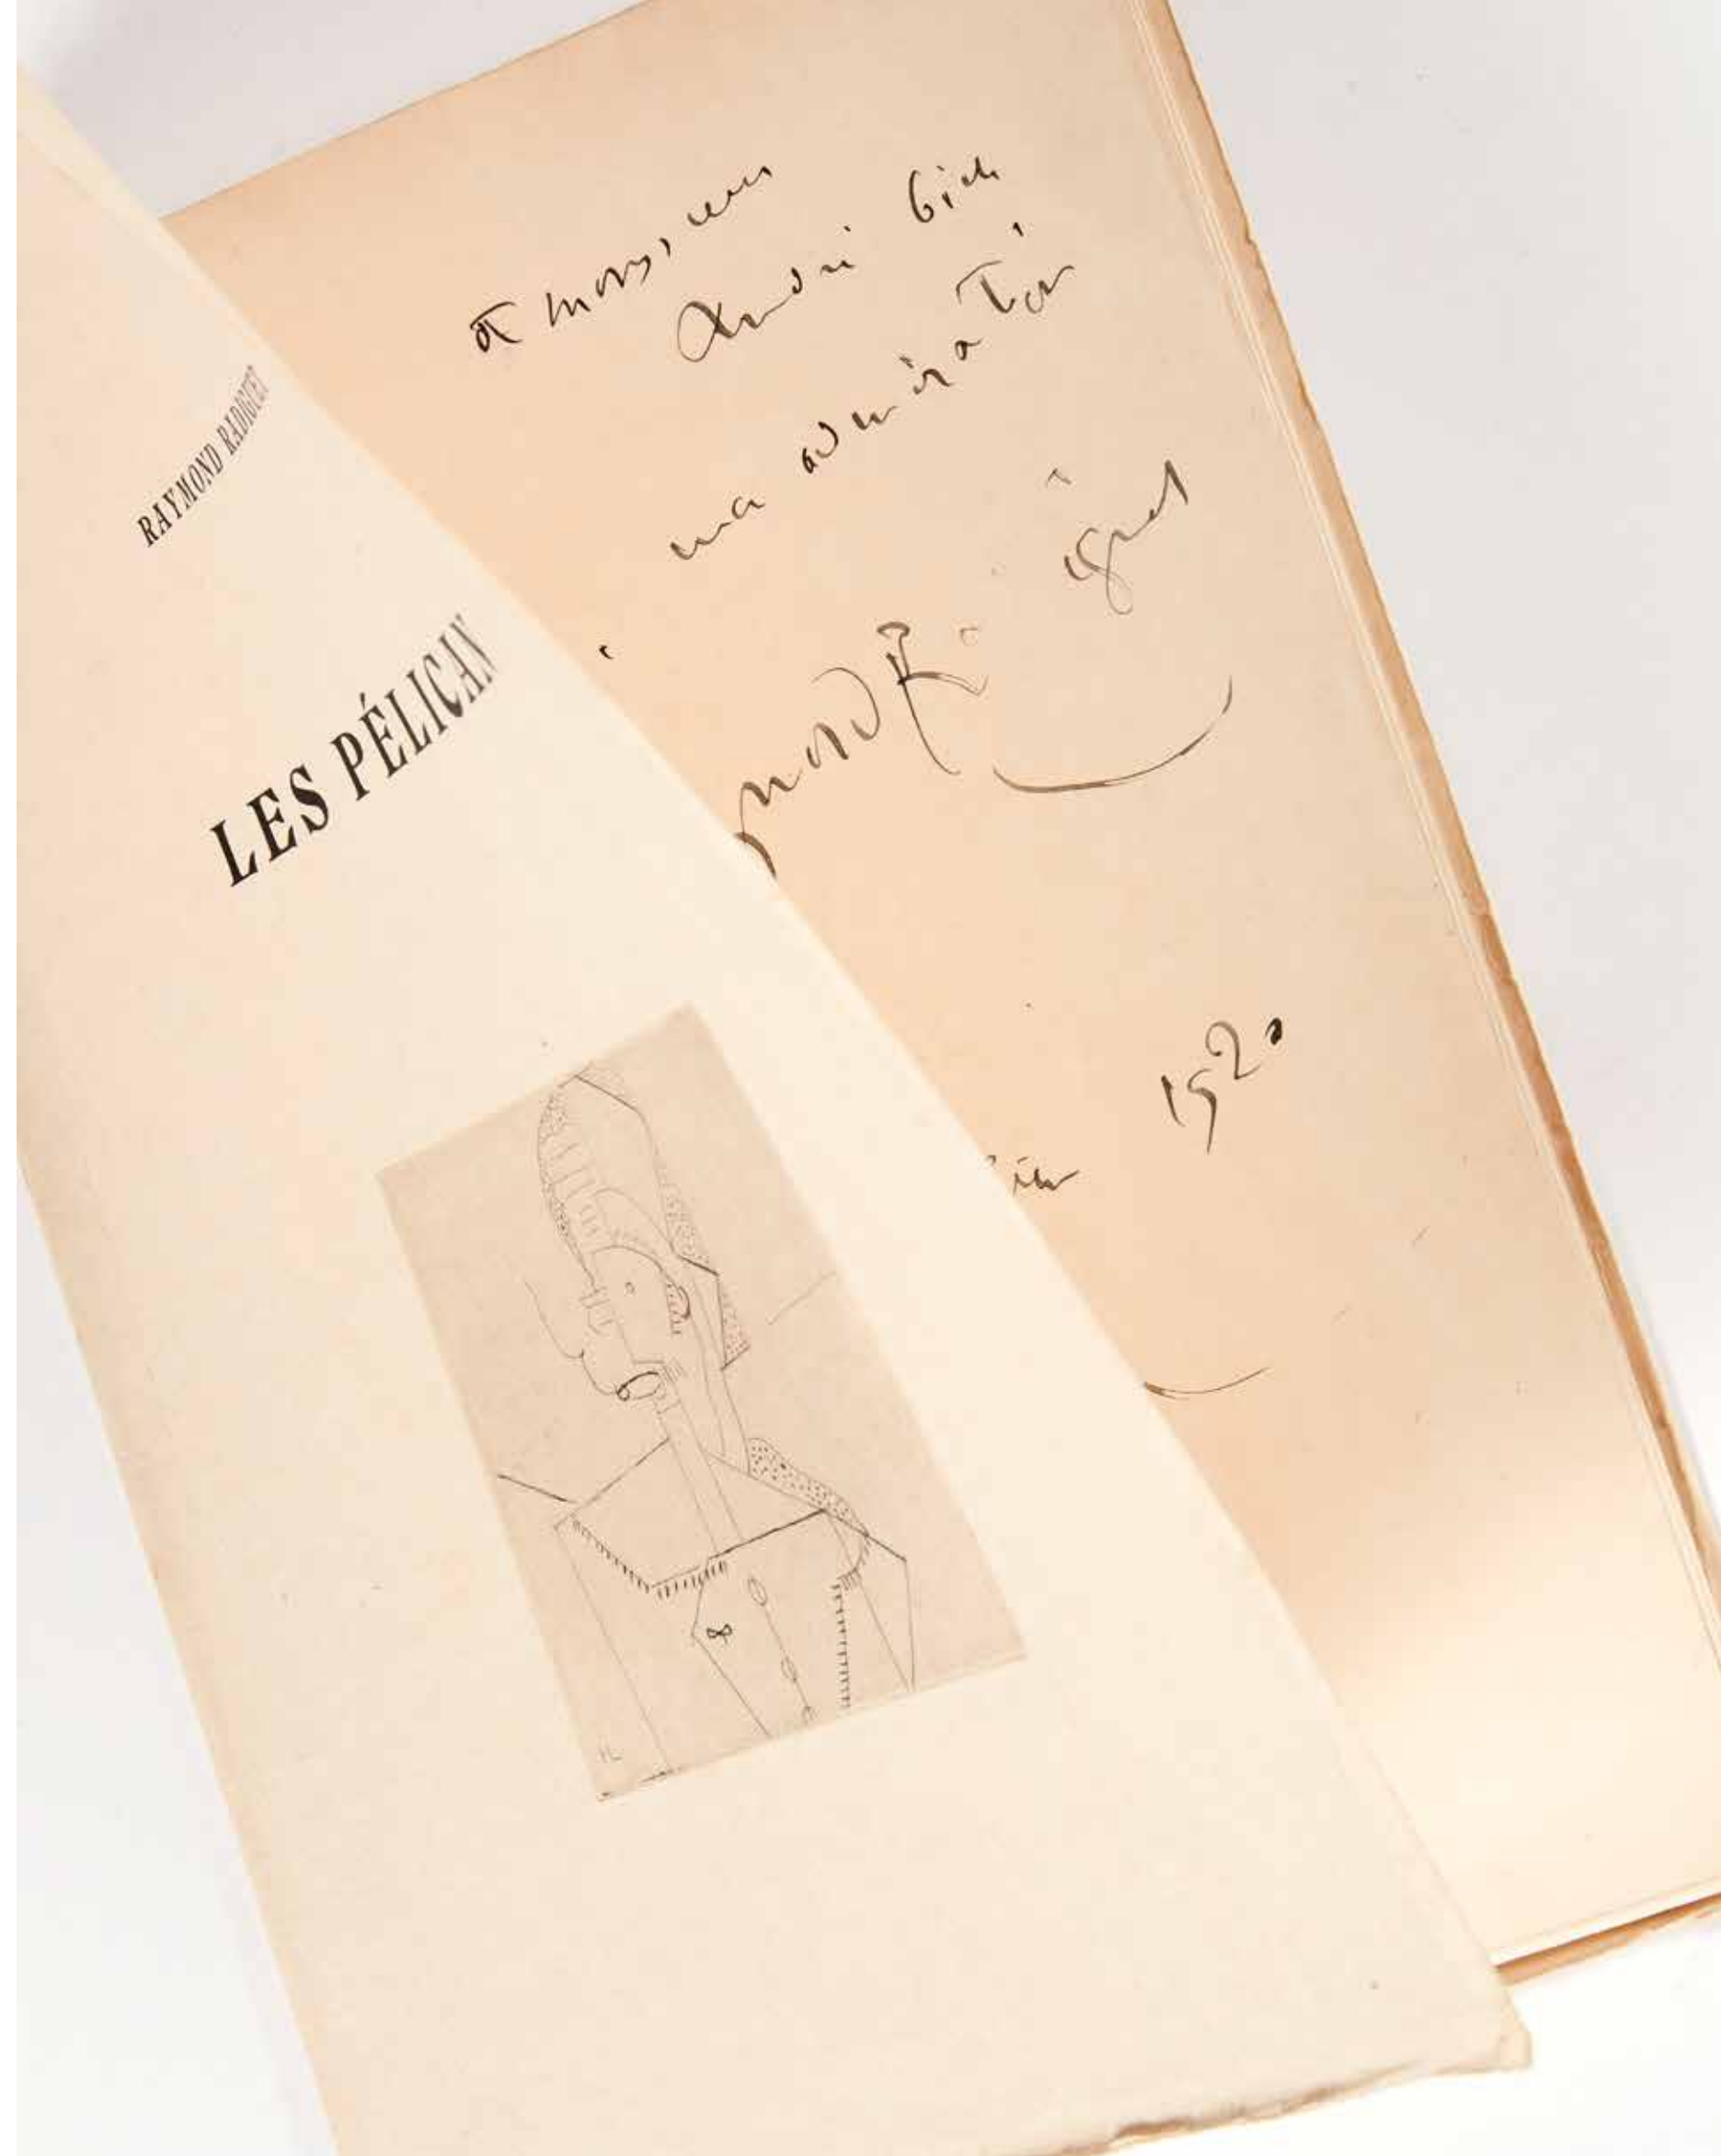 RAYMOND RADIGUET
LES PÉLICAN
HL
à monsieur
André Gide
ma admiration
mond Radiguet
1920